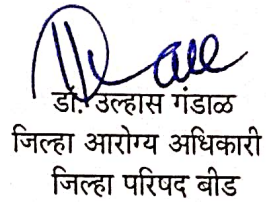 डॉ. उल्हास गंडाळ
जिल्हा आरोग्य अधिकारी
जिल्हा परिषद बीड